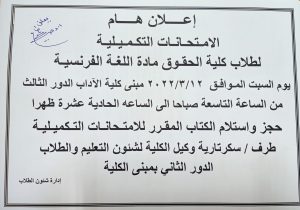 إعــلان هــام
الامـتـحـانـات التـكـمـيـلـيـة
لطـلاب كلية الحـقـوق مـادة اللـغـة الفـرنـسـيـة
يوم السبت الموافـق ٢٠٢٢/٣/١٢ مبنى كلية الآداب الدور الثالث
من الساعة التاسعة صباحا الى الساعه الحادية عشرة ظهرا
حجز واستلام الكتاب المقرر للامـتـحـانـات التـكـمـيـلـيـة
طرف / سكرتارية وكيل الكلية لشئون التعليم والطلاب
الدور الثاني بمبنى الكلية
إدارة شئون الطلاب